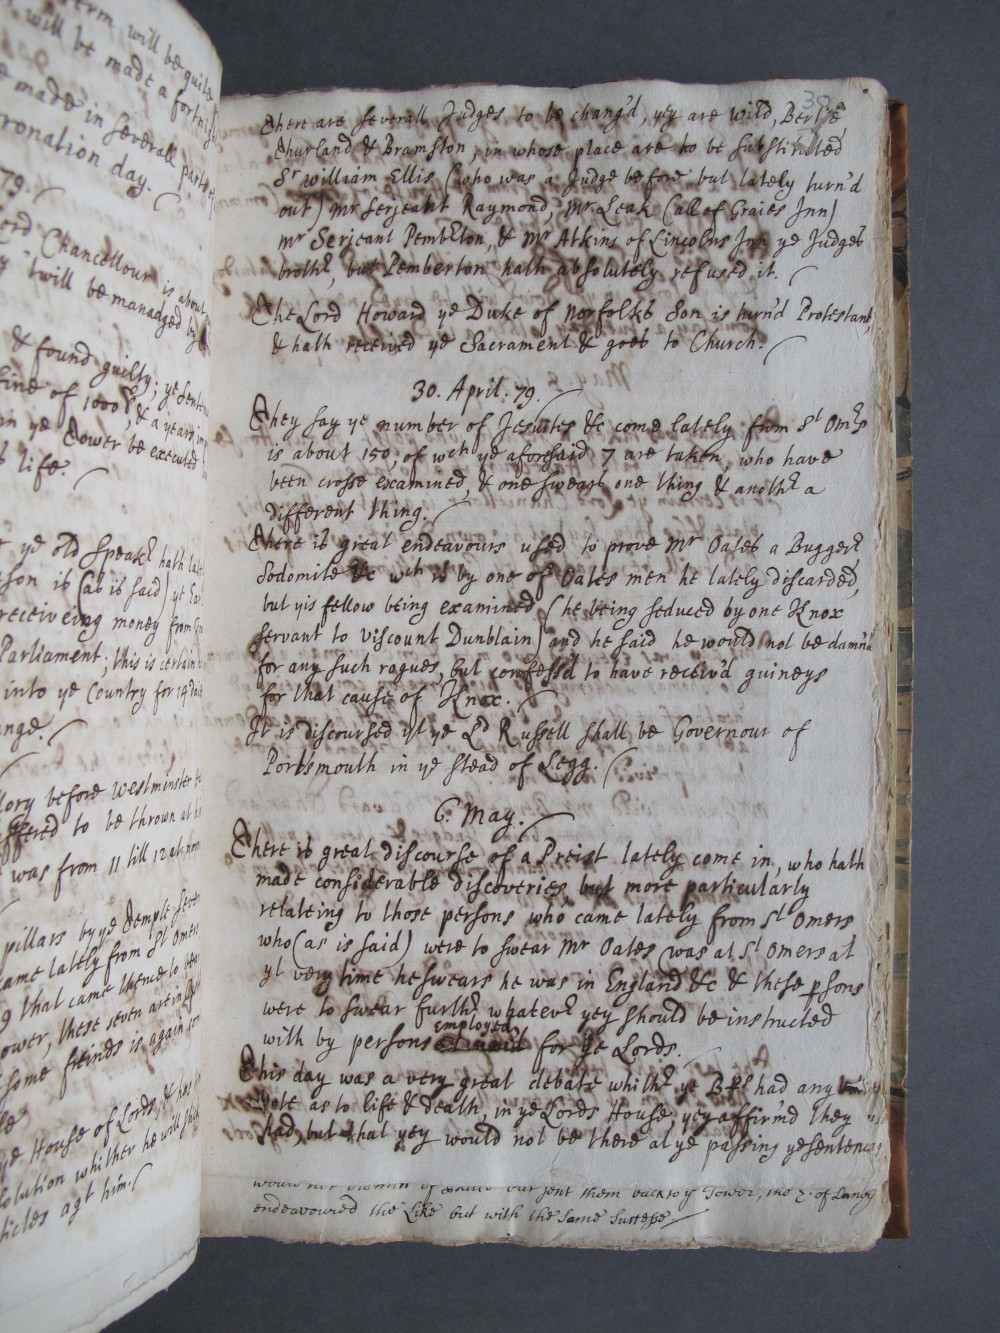 term, will be quite
will be made a fortnigh
made in severall parts of
ronation day.
79.
ord Chancellour is about
y 'twill be managed by
& found guilty; ye senten
fine of 1000£, & a years im
in ye Tower be executed
life.
ye old Speakr hath late
son is (as is said) ye Ear
receiveing money from
Parliament; this is certain
into ye Country for 14 dai
ange.
lory before Westminster
ffered to be thrown at
was from 11 till 12 at noon
pillars by ye Temple seven
came lately from St Omers
g that came thence to
ower, these seven are in
some freinds is again
ye House of Lords, &
solution whither he will
ticles agt him.
38
There are severall Judges to be chang'd, yey are wild, Bertie,
Thurland & Bramston; in whose place are to be substituted
Sr William Ellis (who was a Judge before but lately turn'd
out) Mr Serjeant Raymond, Mr Leak (all of Graies Inn)
Mr Serjeant Pemberton, & Mr Atkins of Lincolns Inn ye Judges
brothr, but Pemberton hath absolutely refused it.
The Lord Howard ye Duke of Norfolks Son is turn'd Protestant,
& hath received ye Sacrament & goes to Church.
30. April. 79.
They say ye number of Jesuites &c come lately from St Omrs
is about 150, of wch ye aforesaid 7 are taken, who have
been crosse examined, & one swears one thing & anothr a
different thing.
There is great endeavours used to prove Mr Oates a Buggerr
Sodomite &c wch is by one of Oates men he lately discarded,
but yis fellow being examined (he being seduced by one Knox
servant to Viscount Dunblain) and he said he would not be damn'd
for any such rogues, but confess'd to have receiv'd guineys
for that cause of Knox.
It is discoursed yt ye Ld Russell shall be Governour of
Portsmouth in ye stead of Legg.
6. May.
There is great discourse of a Preist lately come in, who hath
made considerable discoveries, but more particularly
relateing to those persons who came lately from St Omers
who (as is said) were to swear Mr Oates was at St Omers at
yt very time he swears he was in England &c & these psons
were to swear furthr whatevr yey should be instructed
employed
with by persons for ye Lords.
This day was a very great debate whithr ye Bps had any
vote as to life & death, in ye Lords House, yey affirm'd they
had, but that yey would not be there at ye passing ye sentence
of would but sent them back to ye Tower, the E. of Danby
endeavoured the Like but with the same Successe